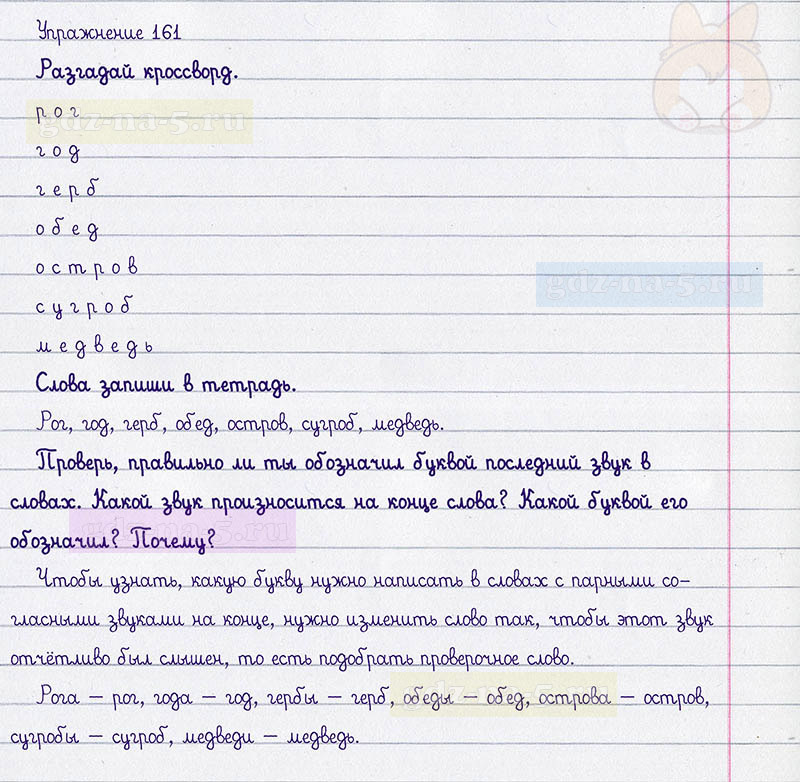 Упражнение 161
Разгадай кроссворд.
р о г
gdz-na-5.ru
г о д
г е р б
о б е д
о с т р о в
gdz-na-5.ru
с у г р о б
м е д в е д ь
Слова запиши в тетрадь.
Рог, год, герб, обед, остров, сугроб, медведь.
Проверь, правильно ли ты обозначил буквой последний звук в
словах. Какой звук произносится на конце слова? Какой буквой его
gdz-na-5.ru
обозначил? Почему?
Чтобы узнать, какую букву нужно написать в словах с парными со-
гласными звуками на конце, нужно изменить слово так, чтобы этот звук
отчётливо был слышен, то есть подобрать проверочное слово.
Рога – рог, года – год, гербы – герб, обеды – обед, острова – остров,
gdz-na-5.ru
сугробы – сугроб, медведи – медведь.